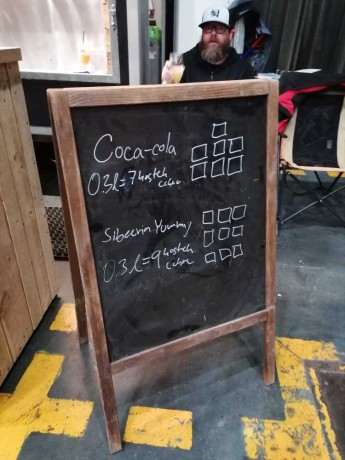 Coca-cola
0.3l=7 kostek
cukru
Siberin Yummy
0.3l=9 kostek
cukru